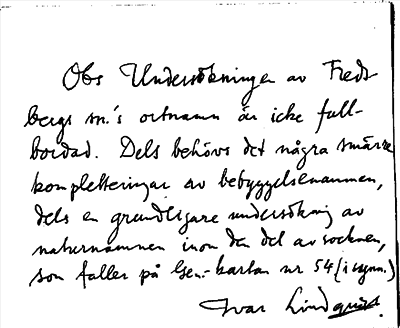 Obs Undersökningen av Freds-
bergs sn:s ortnamn är icke full-
bordad. Dels behövs det några smärre
kompletteringar av bebyggelsenamnen,
dels en grundligare undersökning av
naturnamnen inom den del av socknen,
som faller på Gen.-kartan nr 54 (i synn.)
Ivar Lindquist.